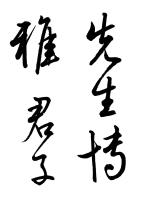 先生博
雅君子